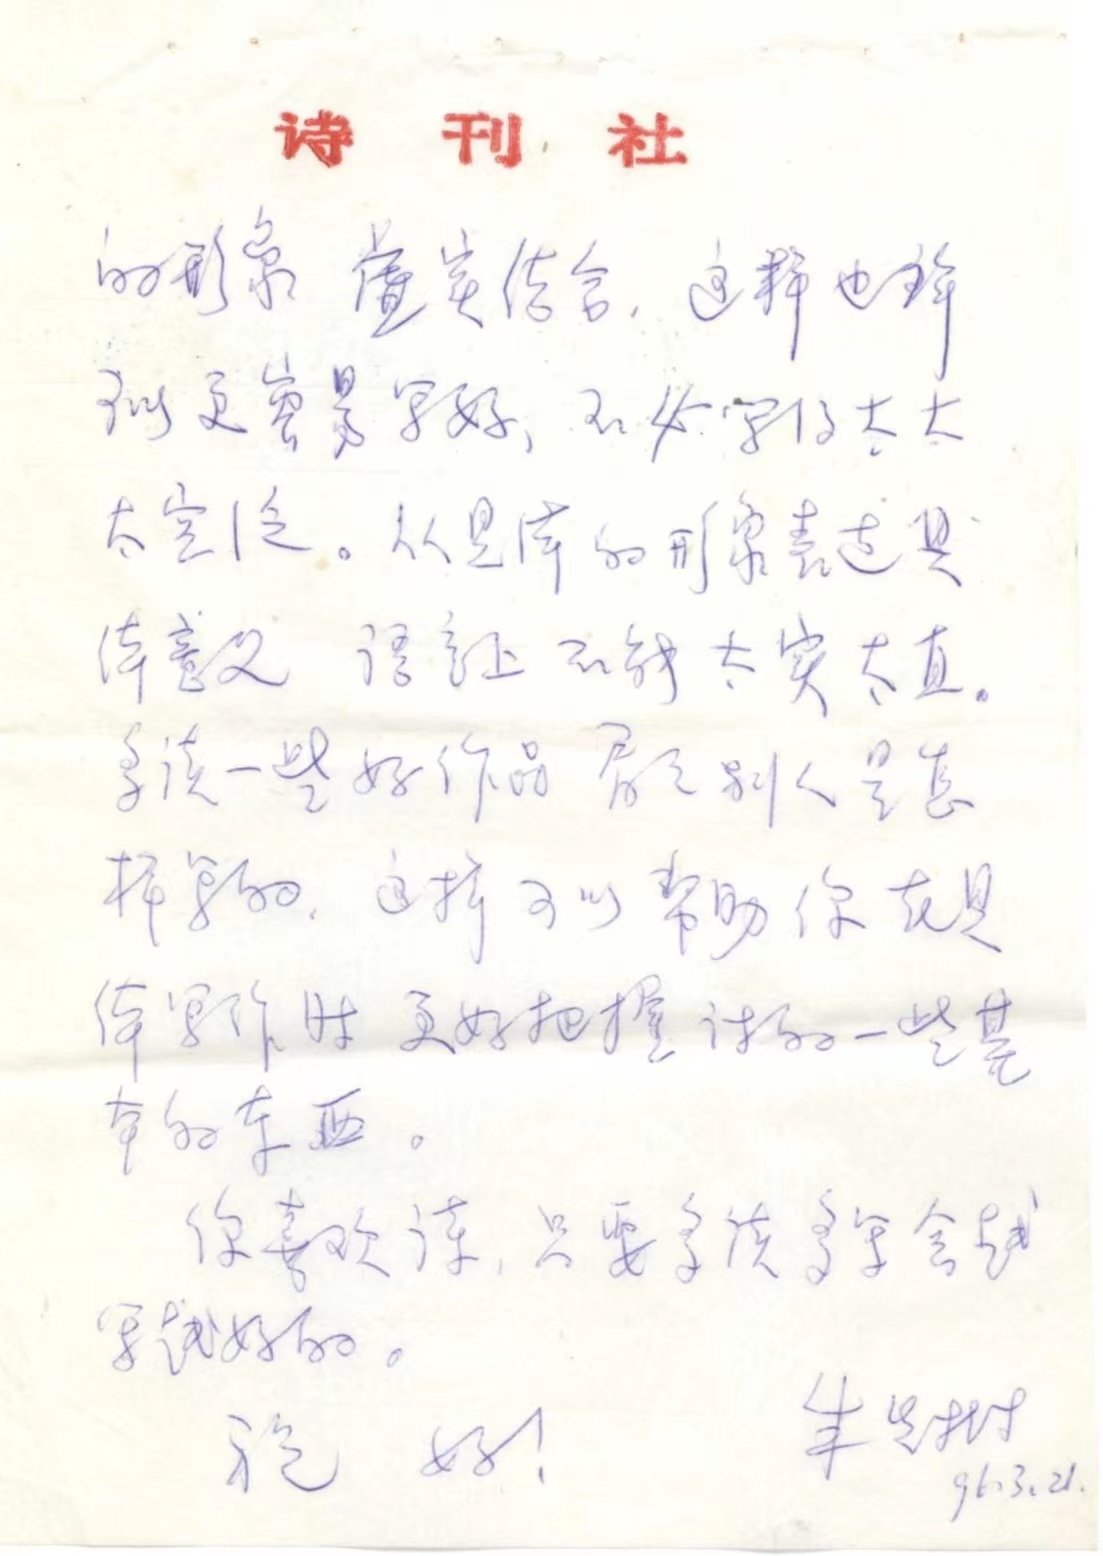 诗刊社
的形象 虚实结合，这样也许
可以更容易写好，不必写得太大
太空泛。从具体的形象表达具
体意义 语言上不能太实太直。
多读一些好作品 看看别人是怎
样写的，这样可以帮助你在具
体写作时更好把握诗的一些基
本的东西。
你喜欢诗，只要多读多写会越
写越好的。
祝 好！
朱
96.3.21.